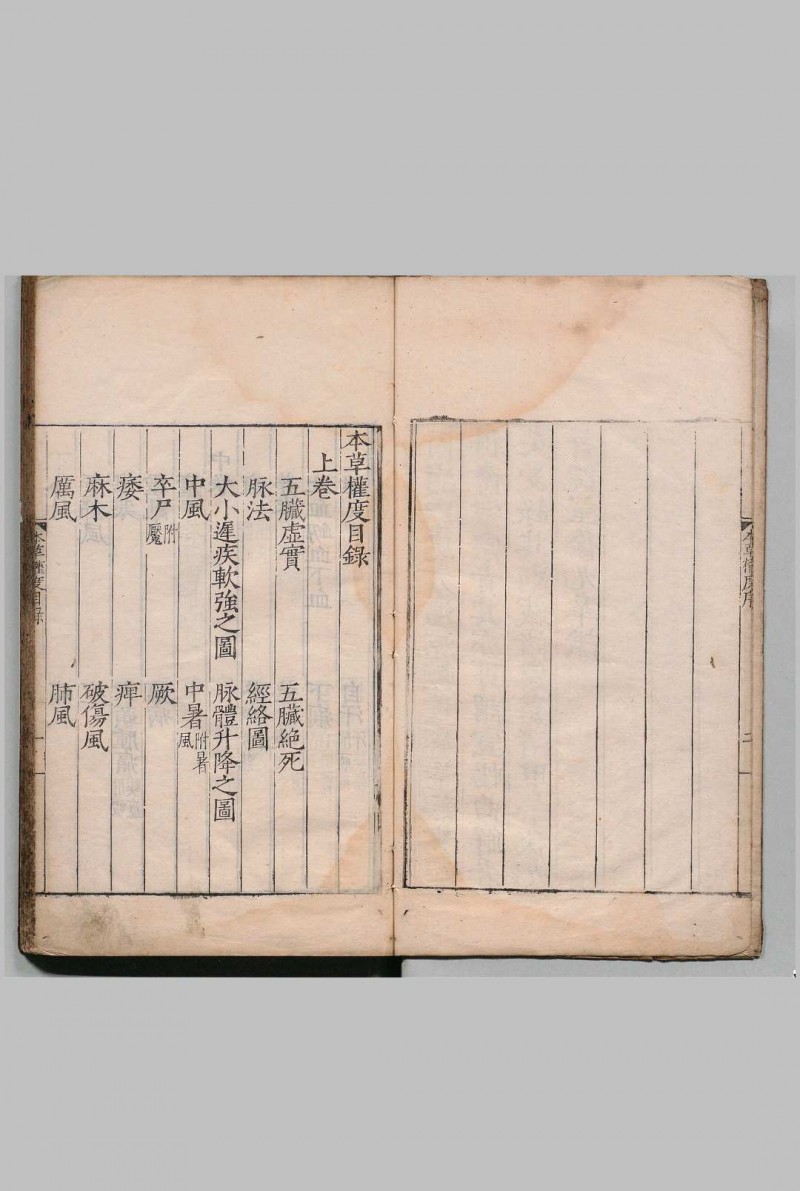 本草權度序
二
本草權度目錄
上卷
五臟虛實 五臟絕死
脉法 經絡圖
大小遲疾軟強之圖 脉體升降之圖
中風 中暑附暑風
卒尸附魘 厥
痿 痺
麻木 破傷風
厲風 肺風
本草權度目錄
一